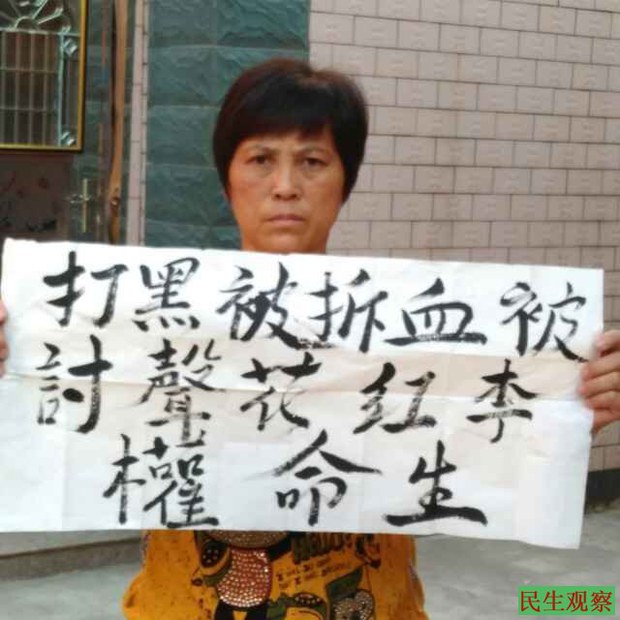 打黑被拆血被
討聲花红李
權命生
民生观察